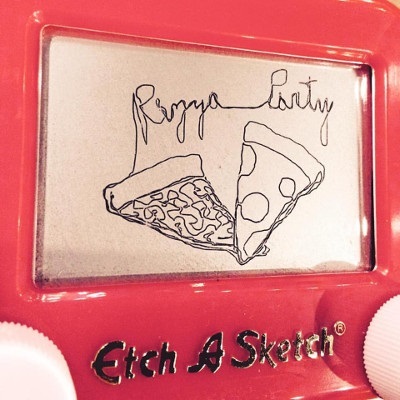 Pizza Party
Etch A Sketch®